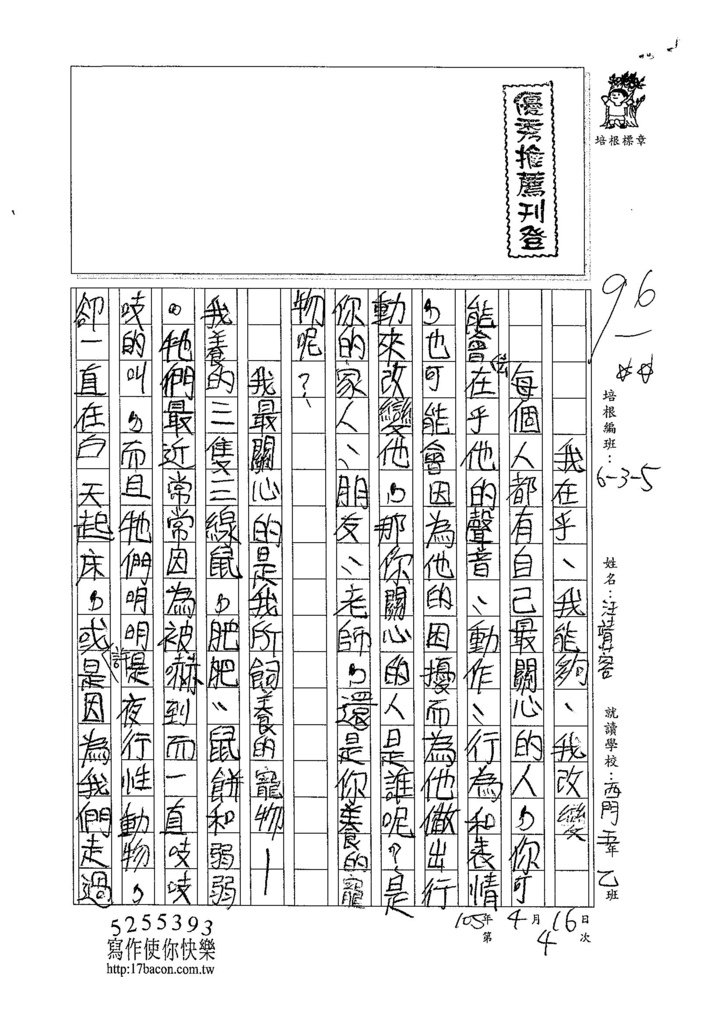 優秀推薦刊登
培根標章
96
培根編班：6-3-5
姓名：汪
就讀學校：西門 五年 乙班
105年4月16日
第4次
我在乎、我能夠、我改變
每個人都有自己最關心的人，你可
能會在乎他的聲音、動作、行為和表情
，也可能會因為他的困擾而為他做出行
動來改變他，那你關心的人是誰呢？是
你的家人、朋友、老師，還是你養的寵
物呢？
我最關心的是我所飼養的寵物—
我養的三隻三線鼠，肥肥、鼠餅和弱弱
。牠們最近常常因為被嚇到而一直吱吱
吱的叫，而且牠們明明是夜行性動物，
卻一直在白天起床，或許是因為我們走過
5255393
寫作使你快樂
http:17bacon.com.tw